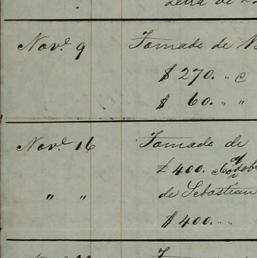 letra de
Nov.e 9 Tomado de
$ 270. " c
$ 60. " "
Nov.e 16 Tomado de
$ 400.
" " de Sebastian
$ 400. "